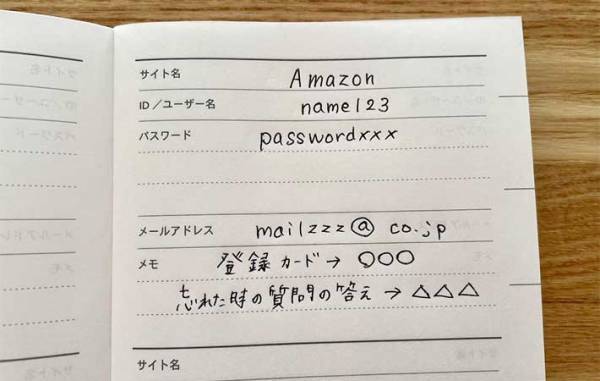 サイト名 Amazon
ID／ユーザー名 name123
パスワード passwordxxx
メールアドレス mailzzz@ co.jp
メモ 登録カード→ ○○○
忘れた時の質問の答え → △△△
サイト名